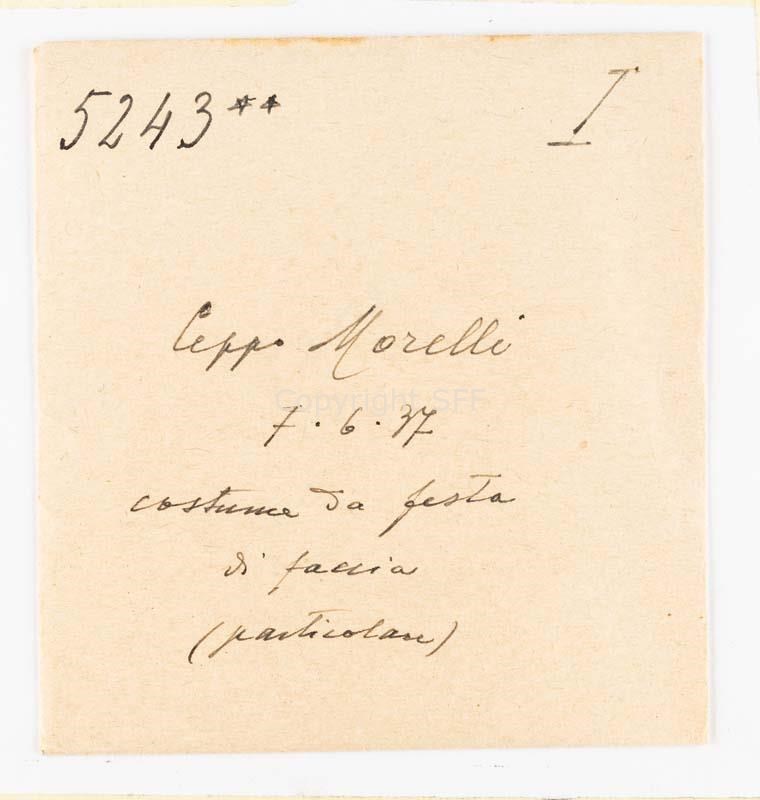 5243** I
Ceppo Morelli
Copyright SFF
7.6.37
costume da festa
di faccia
(particolare)